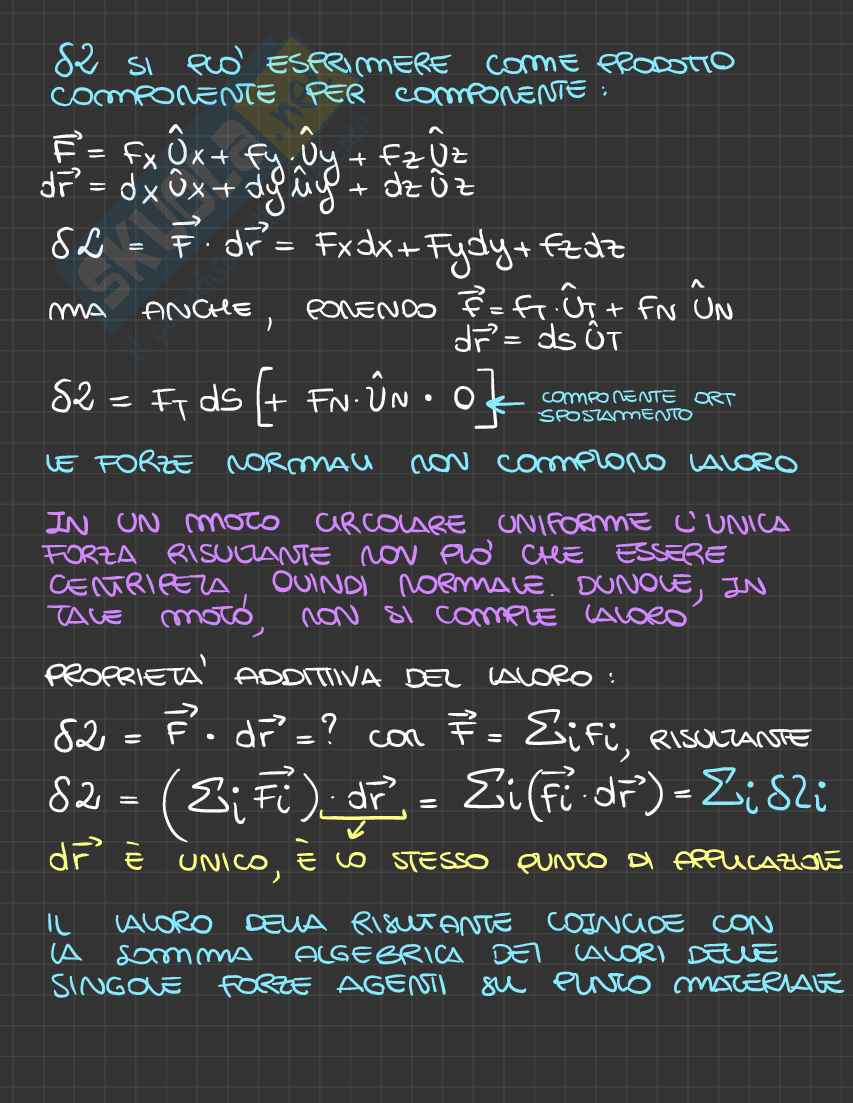 δL SI PUÒ ESPRIMERE COME PRODOTTO
COMPONENTE PER COMPONENTE:
F⃗ = Fx Ûx + Fy·Ûy + Fz Ûz
dr⃗ = dx Ûx + dy ûy + dz Ûz
δL = F⃗ · dr⃗ = Fxdx + Fydy + Fzdz
MA ANCHE, PONENDO F⃗ = FT·ÛT + FN ÛN
dr⃗ = ds ÛT
δL = FT ds [+ FN·ÛN · 0] ← COMPONENTE ORT
SPOSTAMENTO
LE FORZE NORMALI NON COMPIONO LAVORO
IN UN MOTO CIRCOLARE UNIFORME L'UNICA
FORZA RISULTANTE NON PUÒ CHE ESSERE
CENTRIPETA, QUINDI NORMALE. DUNQUE, IN
TALE MOTO, NON SI COMPIE LAVORO
PROPRIETA' ADDITTIVA DEL LAVORO:
δL = F⃗ · dr⃗ = ? con F⃗ = Σi Fi, RISULTANTE
δL = (Σi F⃗i) · dr⃗ = Σi (F⃗i · dr⃗) = Σi δLi
dr⃗ È UNICO, È LO STESSO PUNTO DI APPLICAZIONE
IL LAVORO DELLA RISULTANTE COINCIDE CON
LA SOMMA ALGEBRICA DEI LAVORI DELLE
SINGOLE FORZE AGENTI SUL PUNTO MATERIALE
SKUOLA.net